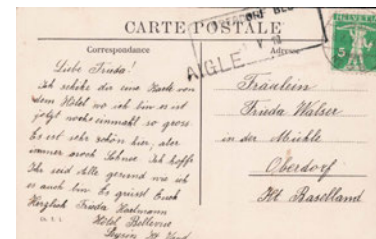 CARTE POSTALE
Correspondance
Adresse
HELVETIA
5
AIGLE
Liebe Frieda!
Ich schicke dir eine Karte von
dem Hôtel wo ich bin es ist
jetzt noch einmahl so gross.
Es ist sehr schön hier, aber
immer noch Schnee. Ich hoffe
Ihr seid Alle gesund wie ich
es auch bin Es grüsst Euch
Herzlich Frieda Hartmann
Hôtel Bellevue
Leysin Kt Vaud
Fräulein
Frieda Walser
in der Mühle
Oberdorf
Kt. Baselland